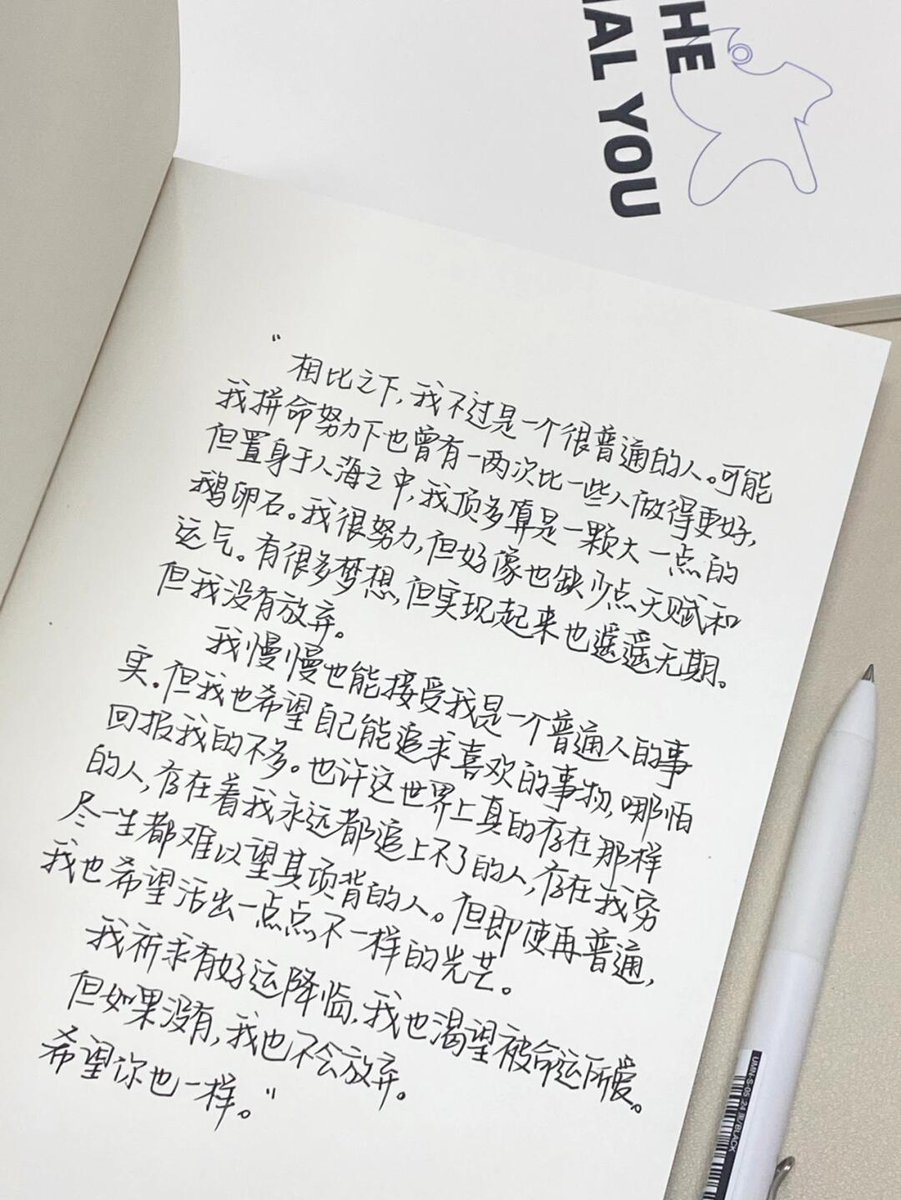 HE
AL YOU
"相比之下,我不过是一个很普通的人。可能
我拼命努力下也曾有一两次比一些人做得更好,
但置身于人海之中,我顶多算是一颗大一点的
鹅卵石。我很努力,但好像也缺少点天赋和
运气。有很多梦想,但实现起来也遥遥无期。
但我没有放弃。
我慢慢也能接受我是一个普通人的事
实.但我也希望自己能追求喜欢的事物,哪怕
回报我的不多。也许这世界上真的存在那样
的人,存在着我永远都追上不了的人,存在我穷
尽一生都难以望其项背的人。但即使再普通,
我也希望活出一点点不一样的光芒。
我祈求有好运降临,我也渴望被命运所爱。
但如果没有,我也不会放弃。
希望你也一样。"
UMN-S-05 .24 黑/BLACK